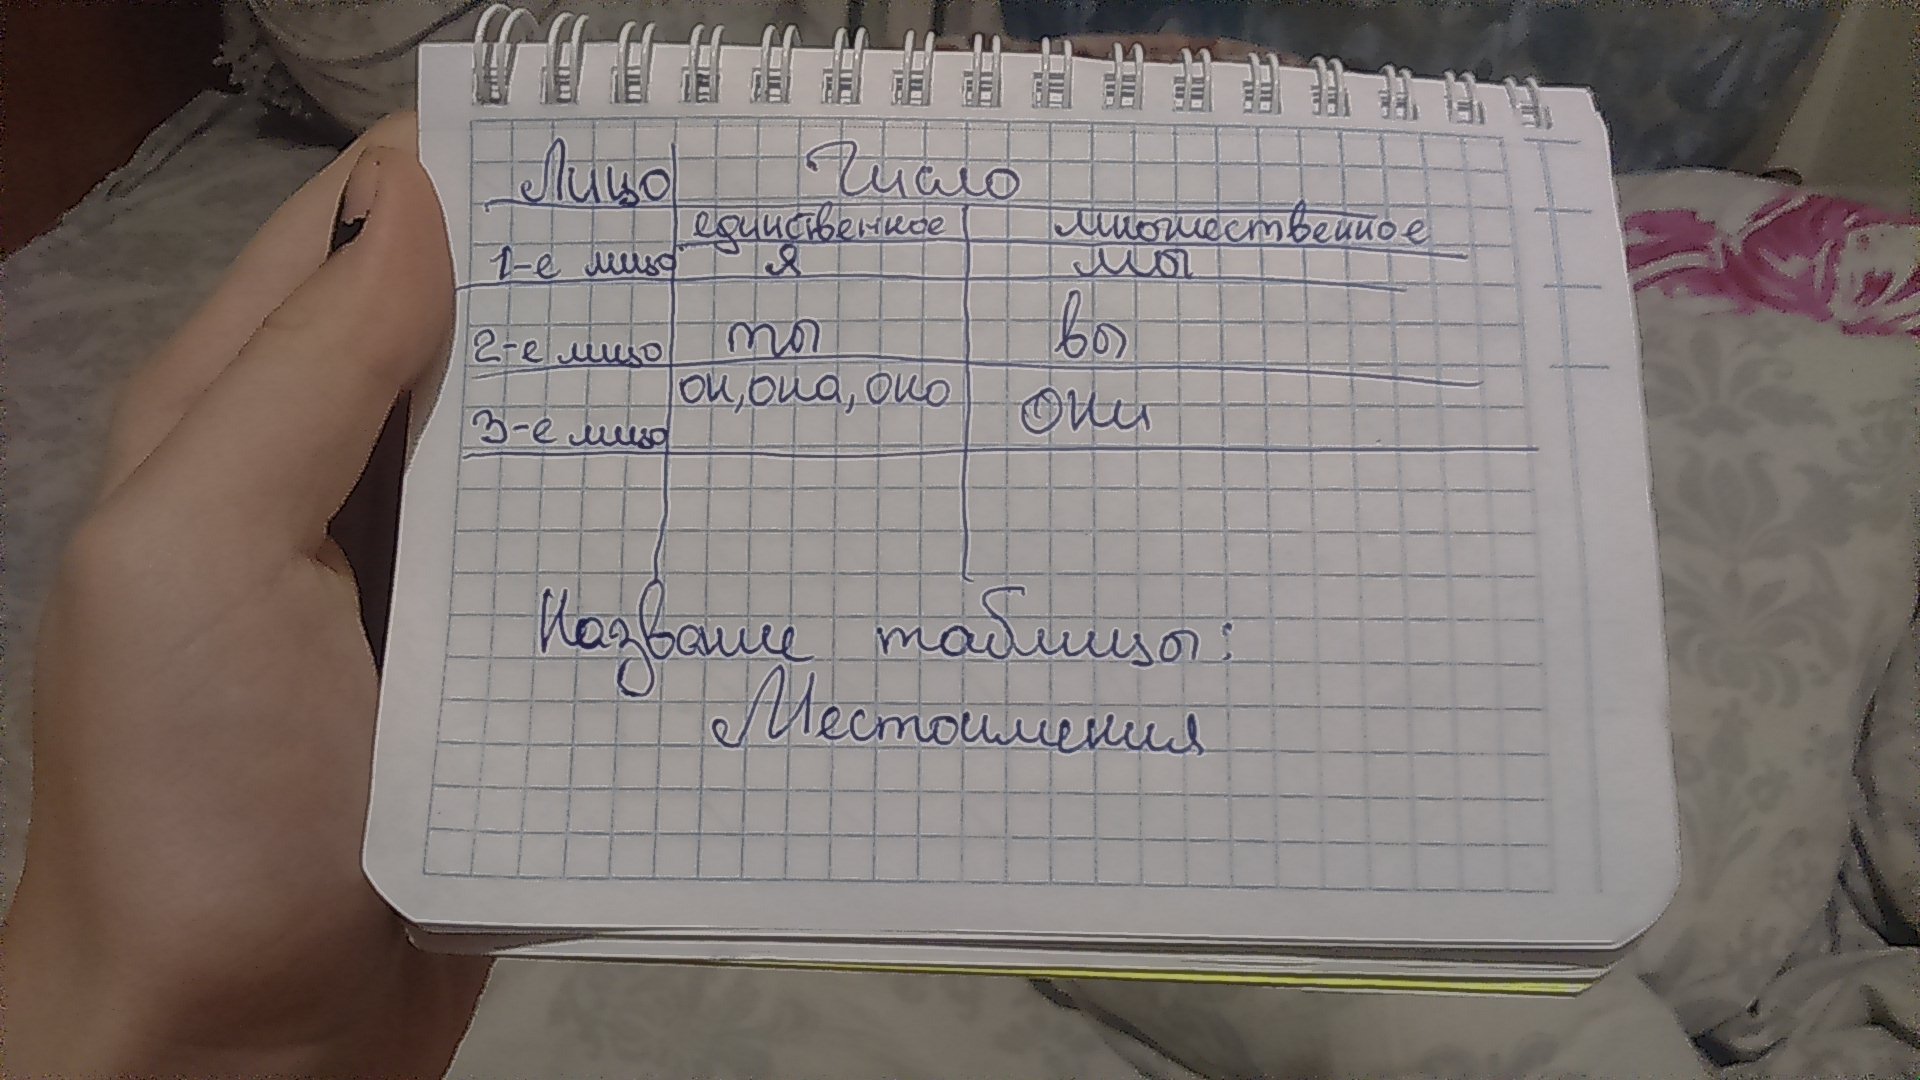 Лицо Число
единственное множественное
1-е лицо я мы
2-е лицо ты вы
он, она, оно они
3-е лицо
Название таблицы:
Местоимения